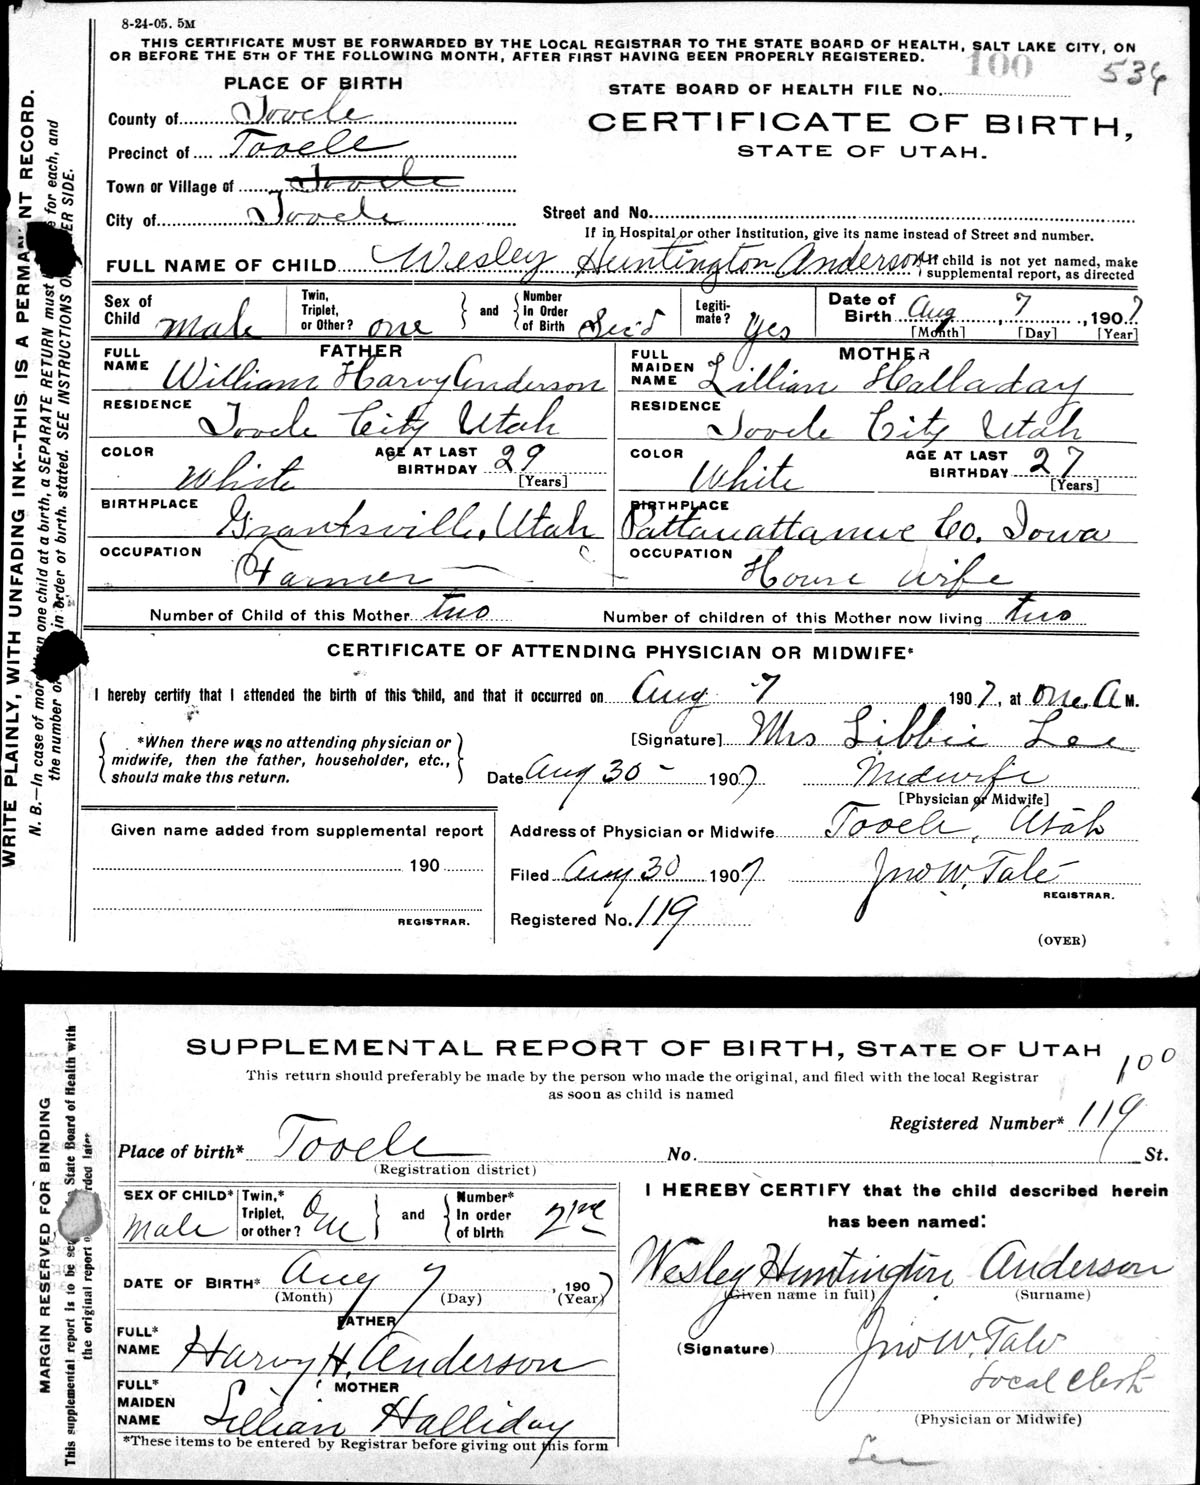 8-24-05. 5M
THIS CERTIFICATE MUST BE FORWARDED BY THE LOCAL REGISTRAR TO THE STATE BOARD OF HEALTH, SALT LAKE CITY, ON
OR BEFORE THE 5TH OF THE FOLLOWING MONTH, AFTER FIRST HAVING BEEN PROPERLY REGISTERED.
100 536
PLACE OF BIRTH
STATE BOARD OF HEALTH FILE No.
County of Tooele
CERTIFICATE OF BIRTH,
STATE OF UTAH.
Precinct of Tooele
Town or Village of Tooele
City of Tooele
Street and No.
If in Hospital or other Institution, give its name instead of Street and number.
FULL NAME OF CHILD Wesley Huntington Anderson { If child is not yet named, make
supplemental report, as directed
Sex of Child Male Twin, Triplet, or Other? one } and { Number In Order of Birth Sec'd Legiti- mate? Yes Date of Birth Aug 7, 1907
[Month] [Day] [Year]
FATHER MOTHER
FULL NAME William Harvy Anderson FULL MAIDEN NAME Lillian Halladay
RESIDENCE Tooele City Utah RESIDENCE Tooele City Utah
COLOR White AGE AT LAST BIRTHDAY 29 [Years] COLOR White AGE AT LAST BIRTHDAY 27 [Years]
BIRTHPLACE Grantsville, Utah BIRTHPLACE Pattauattamie Co. Iowa
OCCUPATION Farmer OCCUPATION House wife
Number of Child of this Mother two Number of children of this Mother now living two
CERTIFICATE OF ATTENDING PHYSICIAN OR MIDWIFE*
I hereby certify that I attended the birth of this child, and that it occurred on Aug 7 1907, at one. A M.
{ *When there was no attending physician or
midwife, then the father, householder, etc.,
should make this return. }
[Signature] Mrs Libbie Lee
Date Aug 30 - 1907 Midwife
[Physician or Midwife]
Given name added from supplemental report
190
REGISTRAR.
Address of Physician or Midwife Tooele, Utah
Filed Aug 30 1907 Jno W. Tate
REGISTRAR.
Registered No. 119
(OVER)
WRITE PLAINLY, WITH UNFADING INK--THIS IS A PERMANENT RECORD.
N. B.—In case of more than one child at a birth, a SEPARATE RETURN must for each, and
the number of in order of birth, stated. SEE INSTRUCTIONS SIDE.
SUPPLEMENTAL REPORT OF BIRTH, STATE OF UTAH
100
This return should preferably be made by the person who made the original, and filed with the local Registrar
as soon as child is named
Registered Number* 119
Place of birth* Tooele No. St.
(Registration district)
SEX OF CHILD* Male Twin,* Triplet, or other? One } and { Number* In order of birth 2nd
I HEREBY CERTIFY that the child described herein
has been named:
DATE OF BIRTH* Aug 7, 1907
(Month) (Day) (Year)
Wesley Huntington Anderson
(Given name in full) (Surname)
FATHER
FULL* NAME Harvy H. Anderson
(Signature) Jno W. Tate
Local Clerk
MOTHER
FULL* MAIDEN NAME Lillian Halliday
(Physician or Midwife)
*These items to be entered by Registrar before giving out this form
Lee
MARGIN RESERVED FOR BINDING
This supplemental report is to be State Board of Health with
the original report